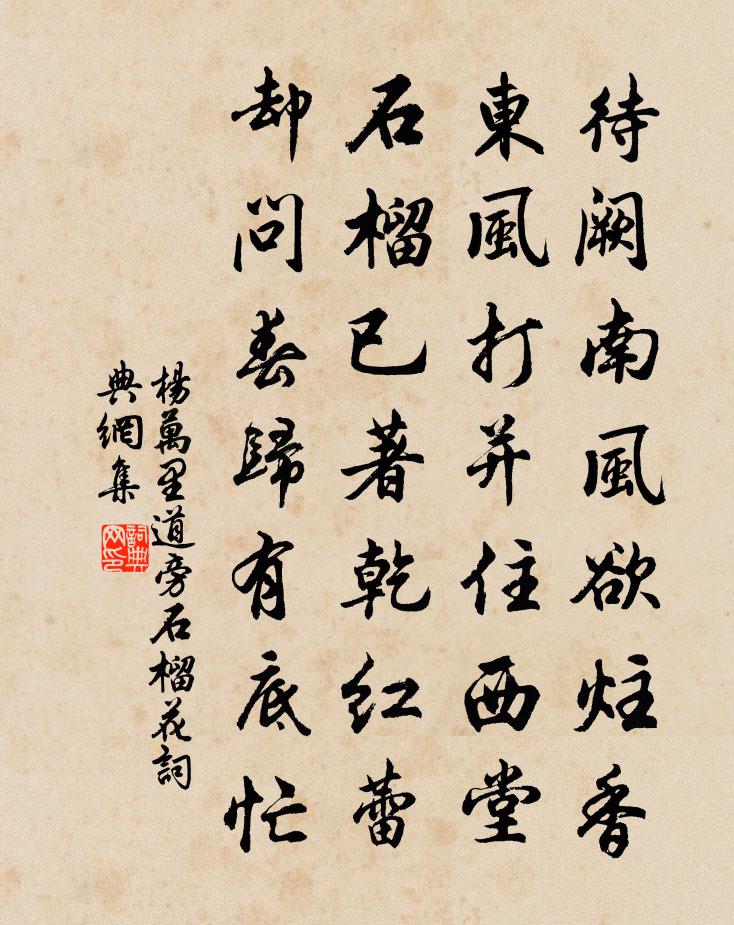 待阙南風欲炷香
東風打并住西堂
石榴已著乾紅蕾
却問春歸有底忙
楊萬里道旁石榴花詞
典網集
詞典
网印